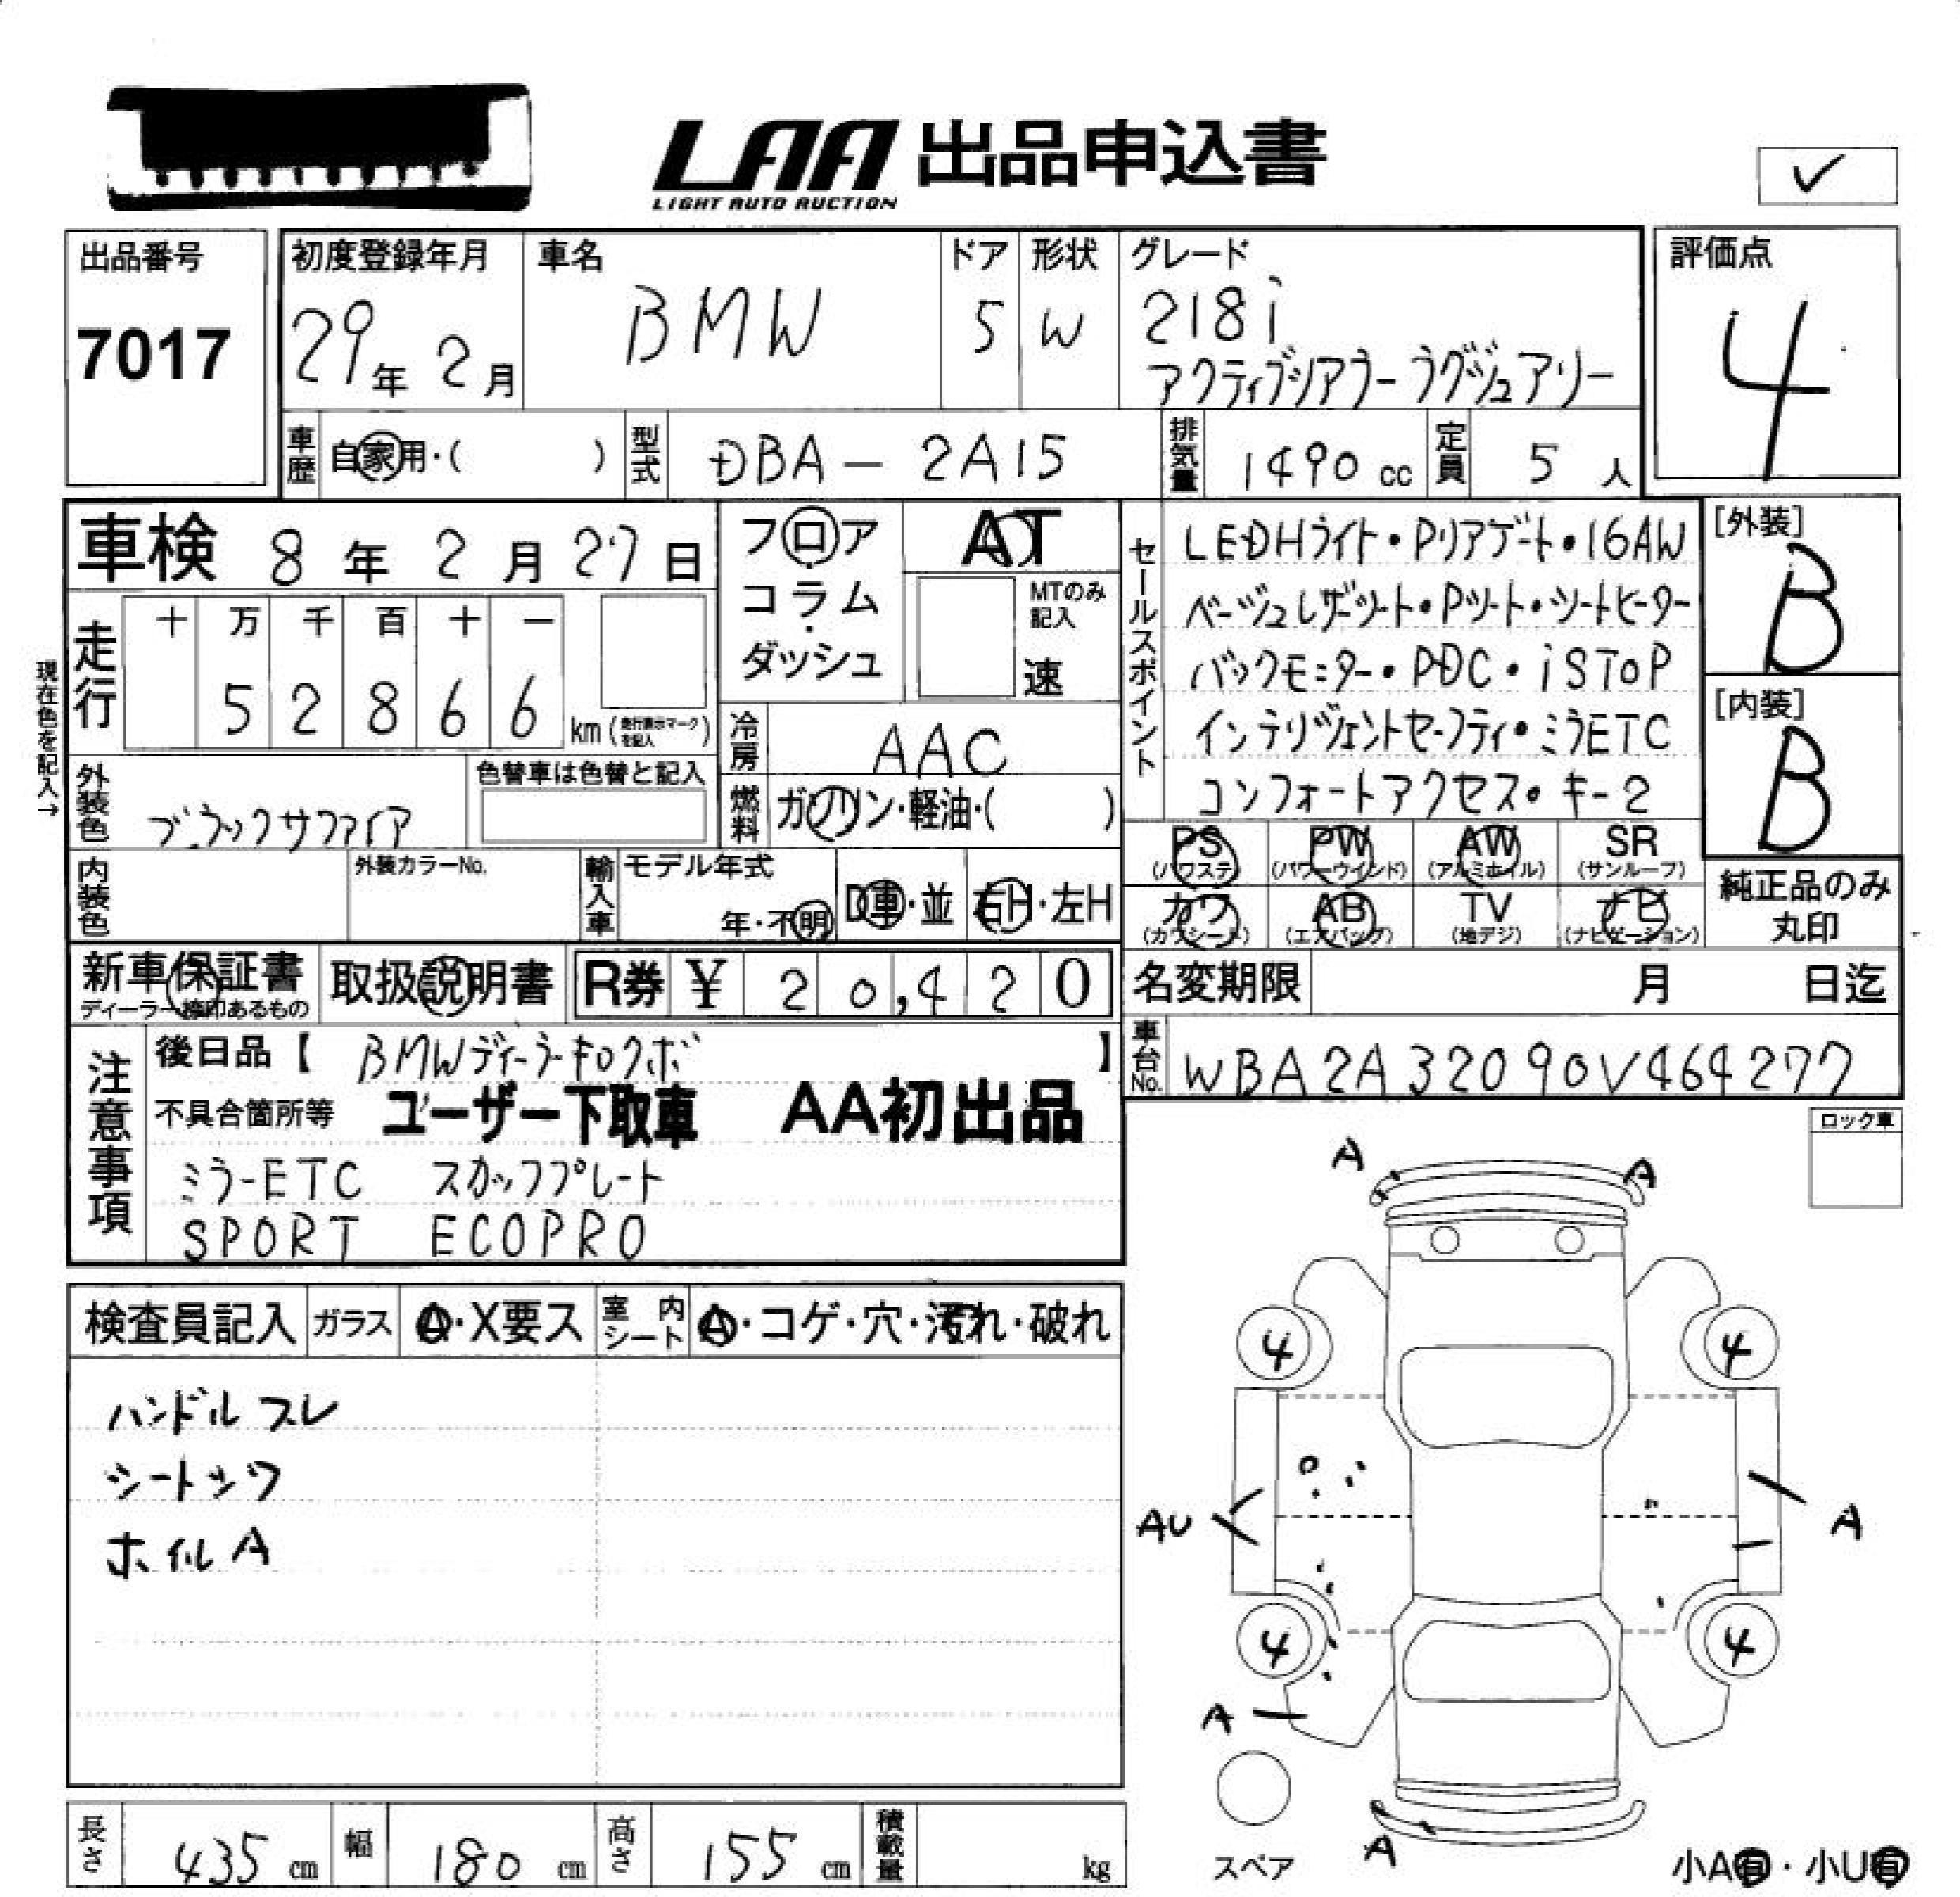 LAA 出品申込書
LIGHT AUTO AUCTION
✓
出品番号
7017
初度登録年月
29年 2月
車名
BMW
ドア
5
形状
W
グレード
218i
アクティブツアラー ラグジュアリー
評価点
4
車歴 自家用・( )
型式 DBA-2A15
排気量 1490 cc
定員 5 人
車検 8年 2月 27日
フロア
コラム
・
ダッシュ
AT
MTのみ
記入
速
走行
十 万 千 百 十 一
5 2 8 6 6
km (走行表示マークを記入)
現在色を記入→
冷房 AAC
燃料 ガソリン・軽油・( )
外装色 ブラックサファイア
色替車は色替と記入
内装色
外装カラーNo.
輸入車
モデル年式
年・不明
D車・並
右H・左H
セールスポイント
LEDHライト・Pリアゲート・16AW
ベージュレザーシート・Pシート・シートヒーター
バックモニター・PDC・iSTOP
インテリジェントセーフティ・ミラETC
コンフォートアクセス・キー2
[外装]
B
[内装]
B
PS
(パワステ)
PW
(パワーウインド)
AW
(アルミホイル)
SR
(サンルーフ)
カワ
(カワシート)
AB
(エアバッグ)
TV
(地デジ)
ナビ
(ナビゲーション)
純正品のみ
丸印
新車保証書
ディーラー捺印あるもの
取扱説明書
R券 ¥ 20,420
名変期限 月 日迄
車台No. WBA2A32090V464277
注意事項
後日品【 BMWディーラーキロクボ 】
不具合箇所等 ユーザー下取車 AA初出品
ミラーETC スカッフプレート
SPORT ECOPRO
ロック車
検査員記入
ガラス A・X要ス
室内シート A・コゲ・穴・汚れ・破れ
ハンドルスレ
シートシワ
ホイルA
A
A
4
4
AU
A
4
4
A
A
スペア
小A有・小U有
長さ 435 cm
幅 180 cm
高さ 155 cm
積載量 kg